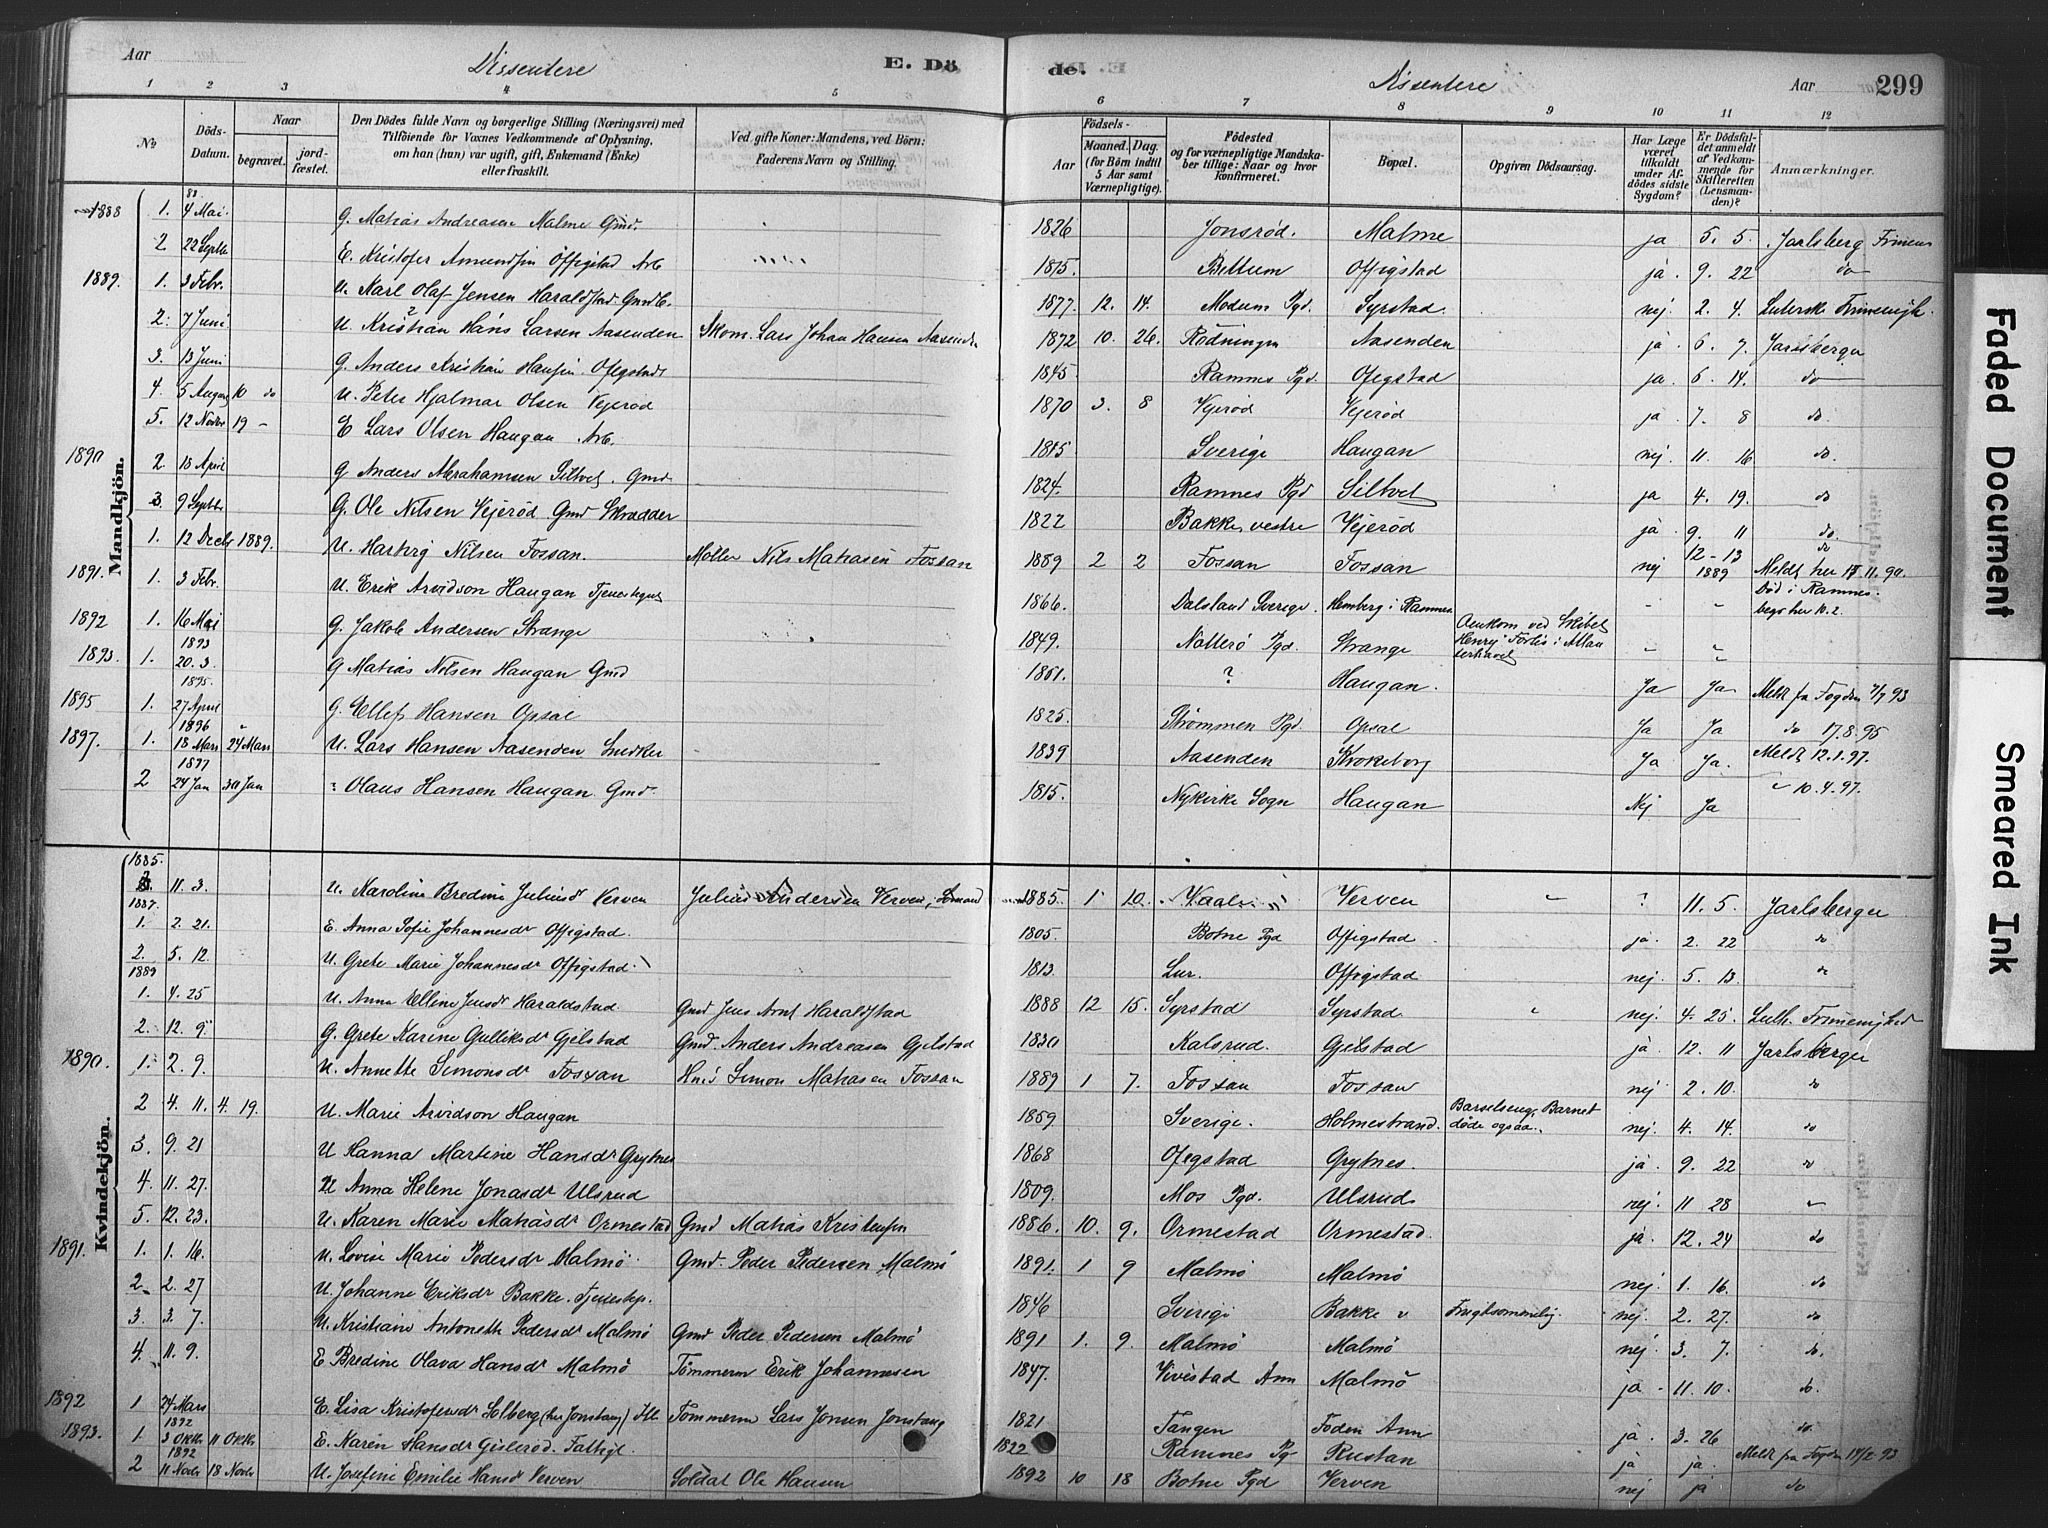 Aar Dissentere E. Dö
1 2 3 4 5
No Döds-Datum. Naar begravet. jordfæstet. Den Dödes fulde Navn og borgerlige Stilling (Næringsvei) med Tilföiende for Voxnes Vedkommende af Oplysning, om han (hun) var ugift, gift, Enkemand (Enke) eller fraskilt. Ved gifte Koner: Mandens, ved Börn: Faderens Navn og Stilling.
de. Dissentere Aar 299
6 7 8 9 10 11 12
Födsels- Aar Maaned. Dag. (for Börn indtil 5 Aar samt Værnepligtige). Födested og for værnepligtige Mandskaber tillige: Naar og hvor konfirmeret. Bopæl. Opgiven Dödsaarsag. Har Læge været tilkaldt under Afdödes sidste Sygdom? Er Dödsfaldet anmeldt af Vedkommende for Skifteretten (Lensmanden)? Anmærkninger.
Mandkjön.
1888 1. 4 Mai 88 G. Matias Andreasen Malme Gmd. 1826 Jonsrød. Malme ja 5. 5. Jarlsberg Frimen
2 22 Septb E. Kristofer Amundsen Offigstad Arb 1815. Bettum Offigstad ja. 9. 22 do
1889. 1. 3 Febr. U. Karl Olaf Jensen Haraldstad 1877. 12. 14. Modum Pgd. Syrstad. nej 2. 4. Lutersk Frimenigh.
2. 7 Juni U. Kristian Hans Larsen Aasenden Skom. Lars Johan Hansen Aasenden 1872 10. 26. Rödningen Aasenden ja. 6. 7. Jarlsberger
3. 13 Juni G. Anders Kristian Hansen Ofigstad 1845. Ramnes Pgd. Ofigstad ja. 6. 14. do
4. 5 August 10 do U. Peter Hjalmar Olsen Vejerød 1870 3. 8 Vejerød Vejerød ja. 7. 8 do.
5. 12 Novbr 19 - E Lars Olsen Haugan. Arb. 1815 Sverige Haugan nej. 11. 16 do.
1890 2. 18 April G. Anders Abrahamsen Siltvet. Gmd. 1824. Ramnes Pgd Siltvet ja 4. 19. do
3. 9 Septb. G. Ole Nilsen Vejerød Gmd Skrædder 1822 Bakke, vestre Vejerød ja 9. 11 do.
1. 12 Decbr 1889. U. Hartvig Nilsen Fossan. Møller Nils Matiasen Fossan 1889 2 2 Fossan Fossan nej 12-13 1889 do Meldt her 15.11.90.
1891. 1. 3 Febr. U. Erik Arvidson Haugan Tjenestegut 1866. Dalsland Sverige. Hemberg i Ramnes " " Død i Ramnes. begr her 10.2.
1892 1. 16 Mai G. Jakob Andersen Strange 1849. Nøtterø Pgd. Strange Omkom ved Skibet Henry Fortis i Atlanterhavet " "
1893. 1. 1893 20.3. G Matias Nilsen Haugan Gmd 1861. ? Haugan. Ja Ja Meldt fra Fogden 7/7 93
1895 1. 1895. 27 April G. Ellef Hansen Opsal 1825. Strømmen Pgd. Opsal Ja Ja do 17.8.95
1897. 1. 1896 18 Mars 24 Mars U. Lars Hansen Aasenden Snedker 1839 Aasenden Krokeborg Ja Ja. Meldt 12.1.97.
2 1897 24 Jan 30 Jan " Olaus Hansen Haugan. Gmd. 1815. Nykirke Sogn Haugan Nej Ja " 10.4.97.
Kvindekjön.
1885. 2. 11. 3. U. Karoline Bredine Juliusdr Verven Julius Andersen Verven, Sømand 1885. 1 10. Vaale Verven " ? 11. 5. Jarlsberger
1887. 1. 2. 21. E. Anna Sofie Johannesdr Offigstad. 1805. Botne Pgd Offigstad ja. 2. 22 do
2. 5. 12. U. Grete Marie Johannesdr Offigstad. 1813. Lur. Offigstad nej. 5. 13. do
1889 1. 4. 25 U. Anna Elline Jensdr Haraldstad. Gmd Jens Arnt Haraldstad 1888 12 15. Syrstad Syrstad. " nej. 4. 25. Luth. Frimenighed
2. 12. 9 G. Grete Karine Gulliksdr Gjelstad Gmd. Anders Andreasen Gjelstad 1830 Kalsrud. Gjelstad ja. 12. 11 Jarlsberger
1890. 1. 2. 9. U. Annette Simonsdr Fossan Hmd Simon Matiasen Fossan 1889 1 7. Fossan Fossan nej 2. 10. do
2 4. 11. 4. 19. U. Marie Arvidson Haugan 1859 Sverige. Holmestrand. Barselseng. Barnet døde ogsaa. nej. 4. 14. do
3. 9. 21 U Hanna Martine Hansdr Grytnes 1868 Ofegstad Grytnes. ja. 9. 22 do
4. 11. 27. U Anna Helene Jonasdr Ulsrud 1809. Mos Pgd. Ulsrud nej. 11 28 "
5. 12. 23. U. Karen Marie Matiasdr Ormestad Gmd Matias Kristensen 1886. 10. 9. Ormestad Ormestad. ja. 12. 24 do
1891. 1. 1. 16. U. Lovise Marie Pedersdr Malmö. Gmd. Peder Pedersen Malmö 1891. 1 9 Malmö Malmö nej. 1. 16. do
2. 2. 27 U. Johanne Eriksdr Bakke. Tjenestep. 1846 Sverige Bakke v nej. 2. 27. do
3. 3. 7. U. Kristiane Antonette Pedersdr Malmö Gmd Peder Pedersen Malmö 1891 1. 9. Malmö Malmö nej. 3. 7. do.
4. 11. 9. E Bredine Olava Hansdr Malmö Tømmerm Erik Johannesen 1847. Vivestad Ann Malmö ja. 11. 10. do.
1892 1 24 Mars E. Lisa Kristofersdr Solberg (her Jonstang) Tømmerm Lars Jonsen Jonstang 1821 Tangen Foden Ann ja. 3. 26 do.
1893. 1. 1892 3 Oktb 11 Oktb E. Karen Hansdr Gislerød. Fattigl. 1822 Ramnes Pg Rustan ja ja. Meldt fra Fogden 14/2 93
2 1892 11 Novbr 18 Novbr U. Josefine Emilie Hansdr Verven Soldat Ole Hansen 1892 10 18 Botne Pgd Verven nej ja do
Faded Document
Smeared Ink